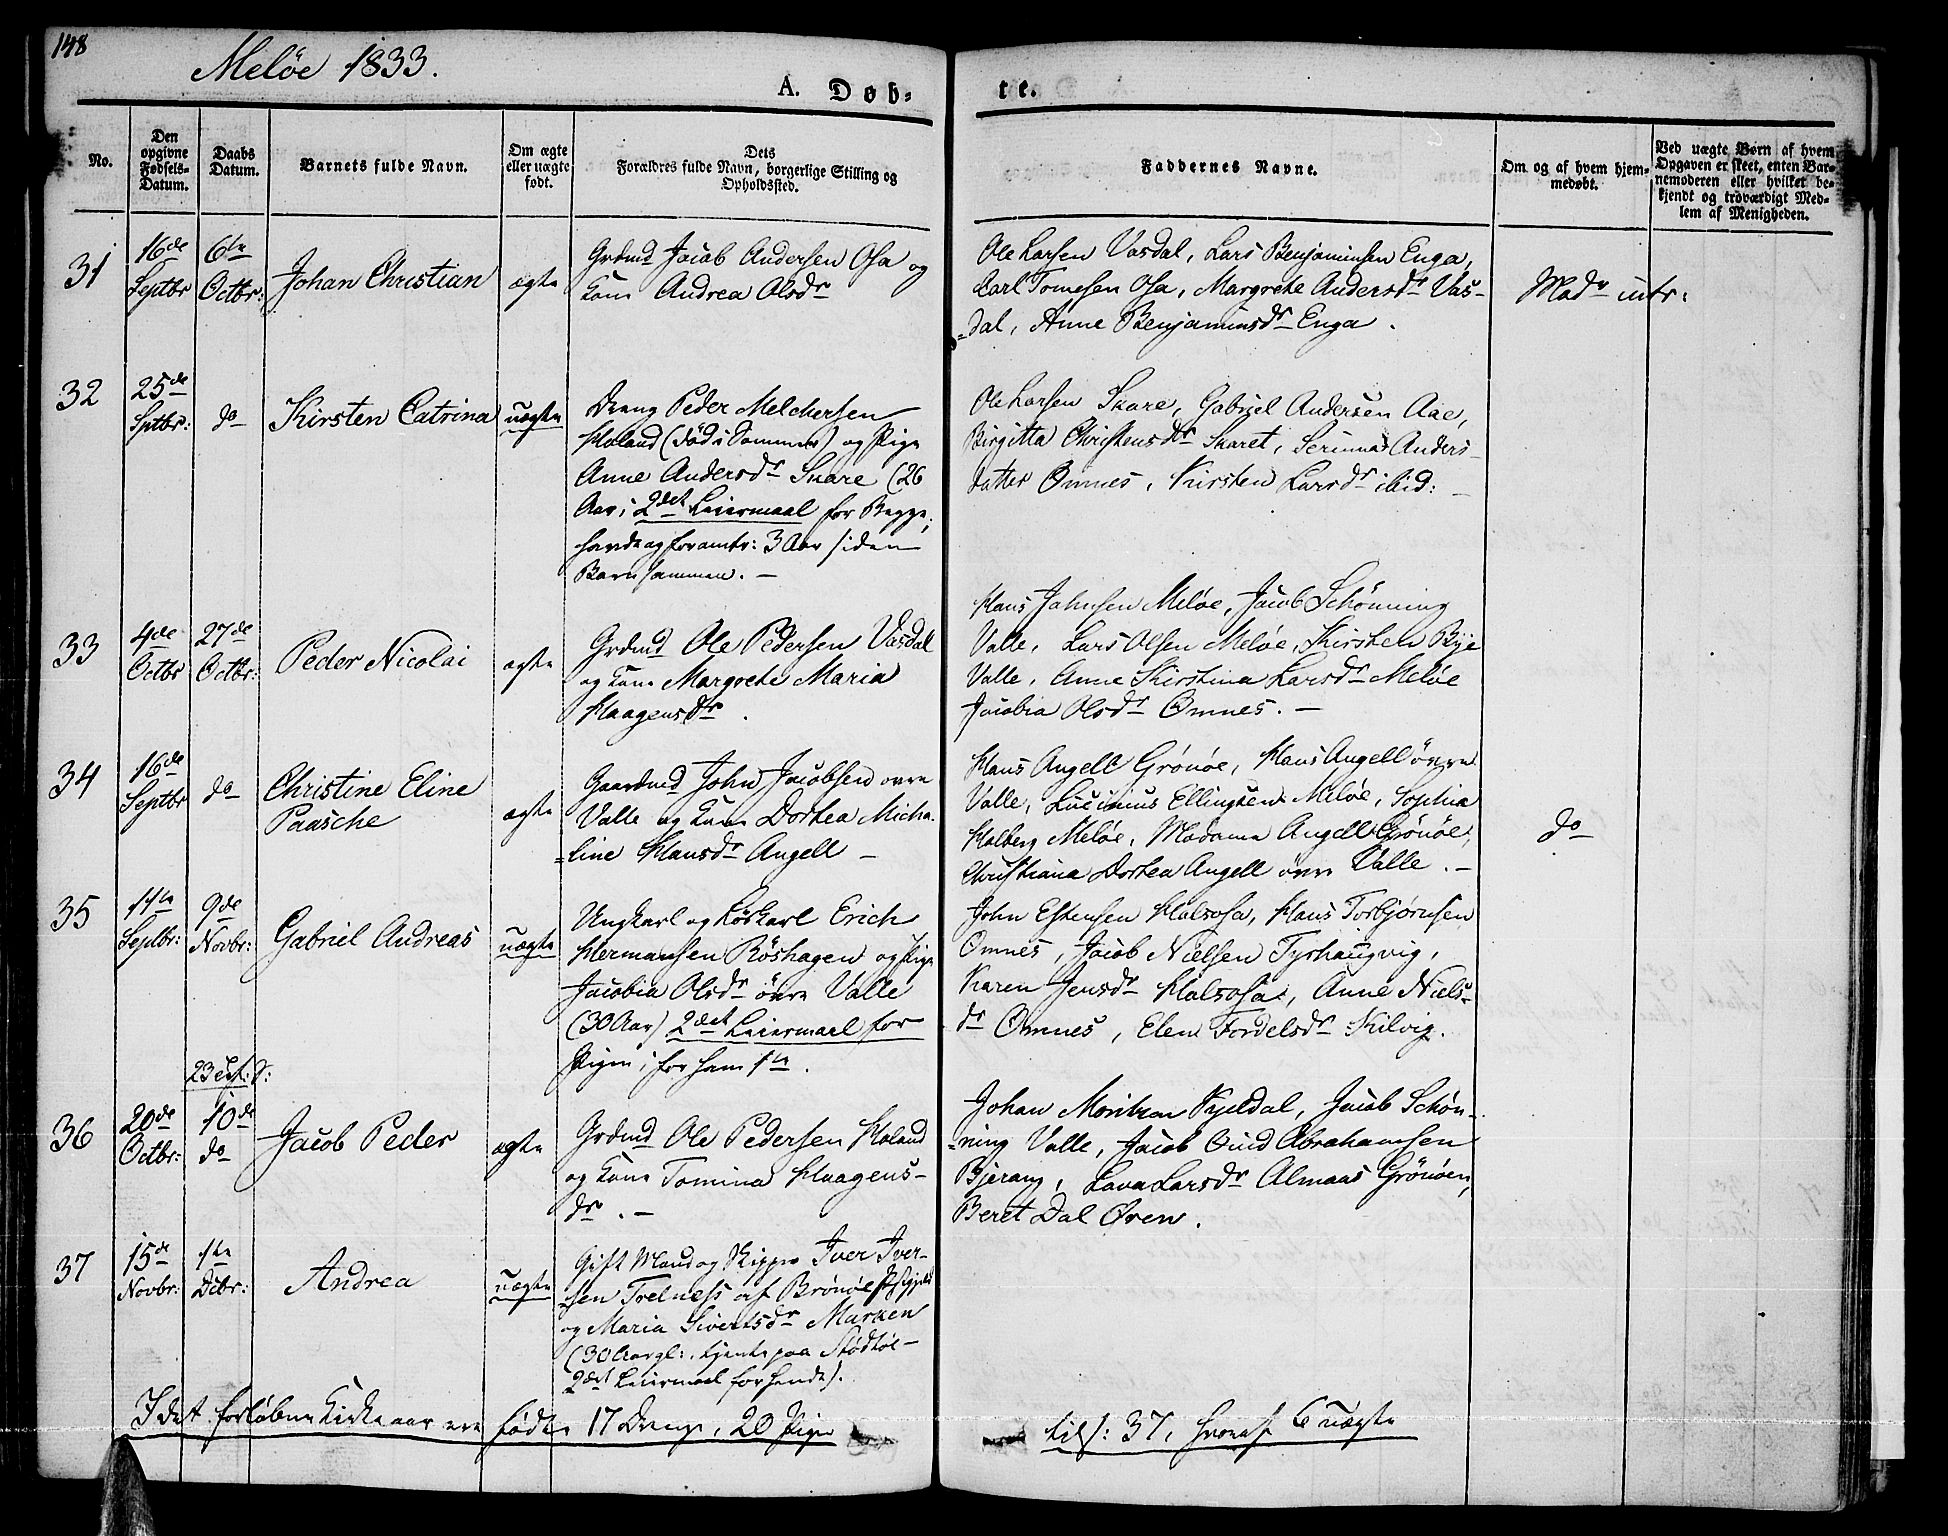 148
Meløe 1833.
A. Døb-
te.
No.
Den opgivne Fødsels-Datum.
Daabs Datum.
Barnets fulde Navn.
Om ægte eller uægte født.
Dets Forældres fulde Navn, borgerlige Stilling og Opholdssted.
Faddernes Navne.
Om og af hvem hjem-medøbt.
Ved uægte Børn af hvem Opgaven er skeet, enten Bar-nemoderen eller hvilket be-kjendt og troværdigt Med-lem af Menigheden.
31
16de Septbr
6te Octbr:
Johan Christian
ægte
Grdmd Jacob Andersen Osa og
Kone Andrea Olsdr
Ole Larsen Vasdal, Lars Benjaminsen Enga,
Carl Tomesen Osa, Margrete Andersdr Vas-
=dal, Anne Benjaminsdr Enga.
Modr intr:
32
25de Sptbr:
do
Kirsten Catrina
uægte
Dreng Peder Melchersen
Holand (død i Sommer) og Pige
Anne Andersdr Skare (26
Aar; 2det Leiermaal for Begge;
havde og foramtr: 3 Aar siden
Barn sammen. —
Ole Larsen Skare, Gabriel Andersen Aae,
Birgitta Christensdr Skaret, Serinna Anders-
datter Ømnes, Kirsten Larsdr ibid: —
33
4de Octbr
27de Octbr:
Peder Nicolai
ægte
Grdmd Ole Pedersen Vasdal
og Kone Margrete Maria
Haagensdr.
Hans Johnsen Meløe, Jacob Schönning
Valle, Lars Olsen Meløe, Kirsten Bye
Valle, Anne Kirstina Larsdr Meløe
Jacobia Olsdr Ømnes. —
34
16de Septbr
do
Christine Eline
Paasche
ægte
Gaardmd John Jacobsen övre
Valle og Kone Dorthea Micha-
=line Hansdr Angell —
Hans Angell Grönöe, Hans Angell övre
Valle, Lucinius Ellingsen Meløe, Sophia
Holberg Meløe, Madame Angell Grönöe,
Christiana Dorthea Angell övre Valle. —
do
35
11te Septbr:
9de Novbr:
Gabriel Andreas
uægte
Ungkarl og Løskarl Erich
Hermansen Röshagen og Pige
Jacobia Olsdr övre Valle
(30 Aar) 2det Leiermaal for
Pigen; for ham 1te.
John Estensen Halsosa, Hans Torbjørnsen
Ømnes, Jacob Nielsen Tyrhaugvig,
Karen Jensdr Halsosa, Anne Niels-
dr Ømnes, Elen Fordelsdr Kilvig.
36
20de Octbr:
10de do
Jacob Peder
ægte
Grdmd Ole Pedersen Holand
og Kone Tomina Haagens-
dr. —
Johan Moritzen Kjeldal, Jacob Schön-
=ning Valle, Jacob Qvist Abrahamsen
Bjerang, Lava Larsdr Almaas Grönöen,
Beret Dal Ören.
37
15de Novbr:
1te Dcbr:
Andrea
uægte
Gift Mand og Skipper Iver Iver-
=sen Trelness af Brönöe
og Maria Sivertsdr Marken
(30 Aar gl:, tjente paa Stødtøe —
2det Leiermaal for hende).
I det forløbne Kirkeaar ere fødte 17 Drenge, 20 Piger
tils: 37, hvoraf 6 uægte